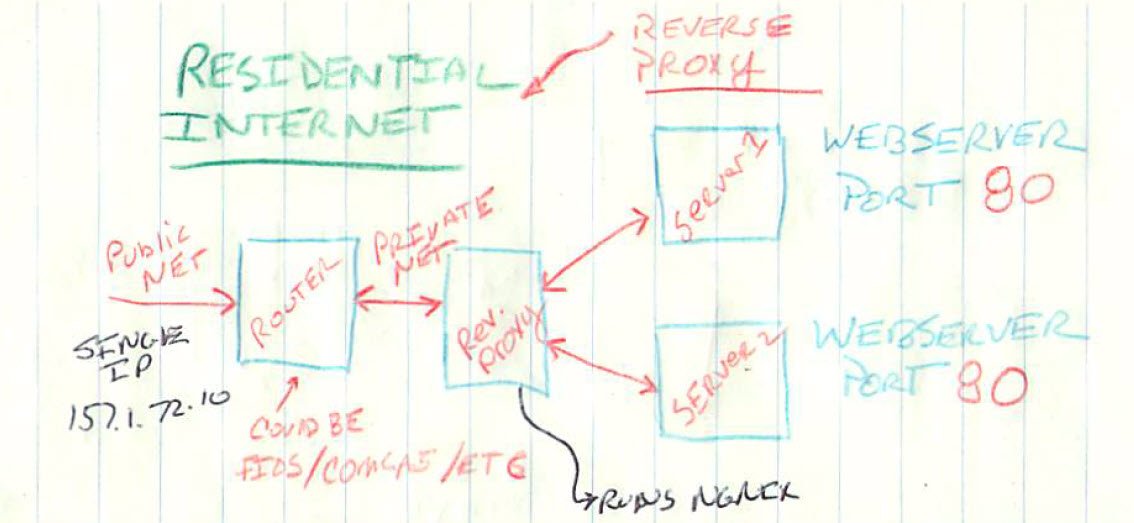 RESIDENTIAL
INTERNET
REVERSE
PROXY
WEBSERVER
PORT 80
Server 1
Public
NET
PRIVATE
NET
ROUTER
Rev.
Proxy
SINGLE
IP
157.1.72.10
COULD BE
FIOS/COMCAS/ETC
SERVER 2
WEBSERVER
PORT 80
RUNS NGNEX